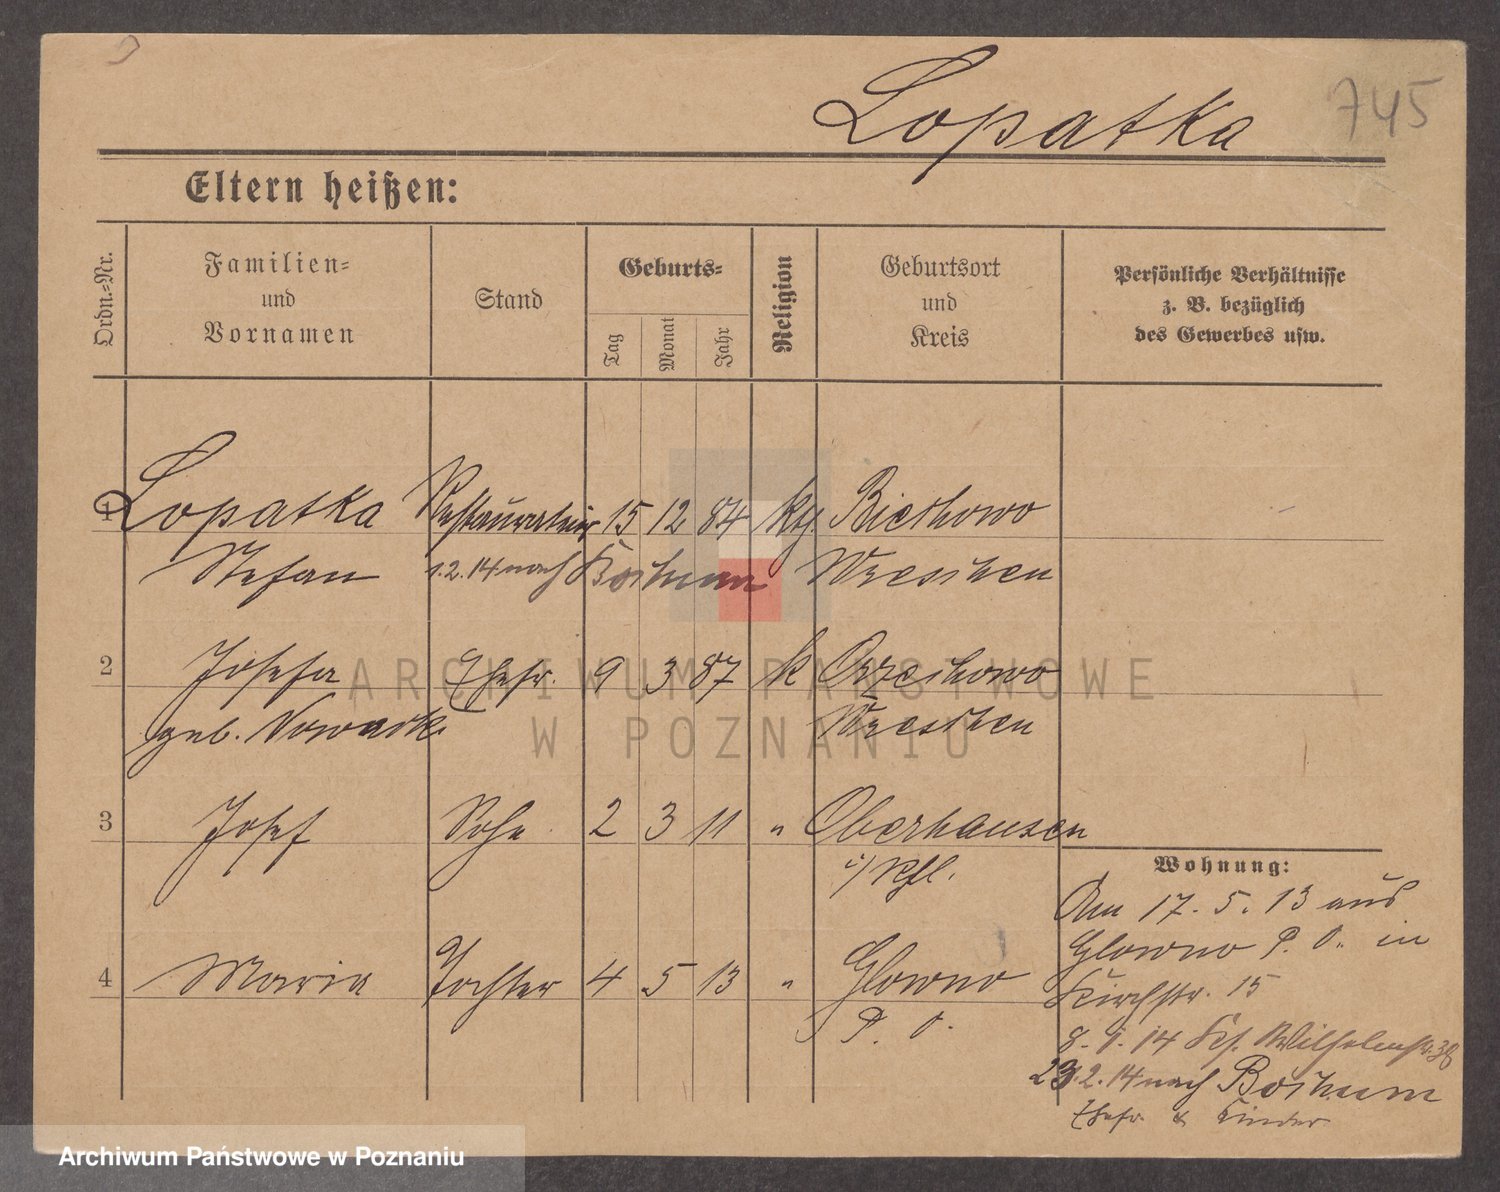 Lopatka 745
Eltern heißen:
Ordn.-Nr.
Familien-
und
Vornamen
Stand
Geburts-
Tag
Monat
Jahr
Religion
Geburtsort
und
Kreis
Persönliche Verhältnisse
z. B. bezüglich
des Gewerbes usw.
1 Lopatka Restaurateur 15 12 84 Biechowo
Stefan 1.2.14 nach Bochum Wreschen
2 Josefa Ehefr. 9 3 87 k Orzechowo
geb. Nowack Wreschen
3 Josef Sohn 2 3 11 " Oberhausen
i/Rhl.
4 Maria Tochter 4 5 13 " Glowno
P. O.
Wohnung:
Am 17.5.13 aus
Glowno P. O. in
Kirchstr. 15
14 Wilhelmstr. 38
23.2.14 nach Bochum
Ehefr. & Kinder
ARCHIWUM PAŃSTWOWE
W POZNANIU
Archiwum Państwowe w Poznaniu